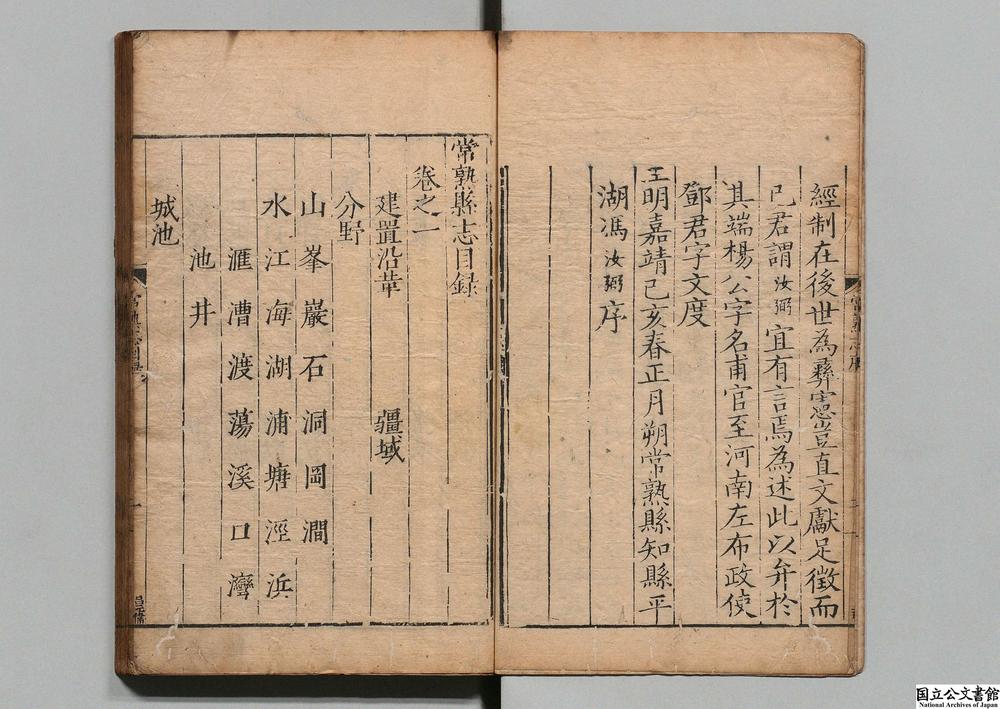 經制在後世為彝憲豈直文獻足徵而
已君謂汝弼宜有言焉為述此以弁於
其端楊公字名甫官至河南左布政使
鄧君字文度
皇明嘉靖己亥春正月朔常熟縣知縣平
湖馮汝弼序
常熟縣志目録
卷之一
建置沿革 疆域
分野
山 峯 巖 石 洞 岡 澗
水 江 海 湖 浦 塘 涇 浜
滙 漕 渡 蕩 溪 口 灣
池 井
城池
国立公文書館
National Archives of Japan